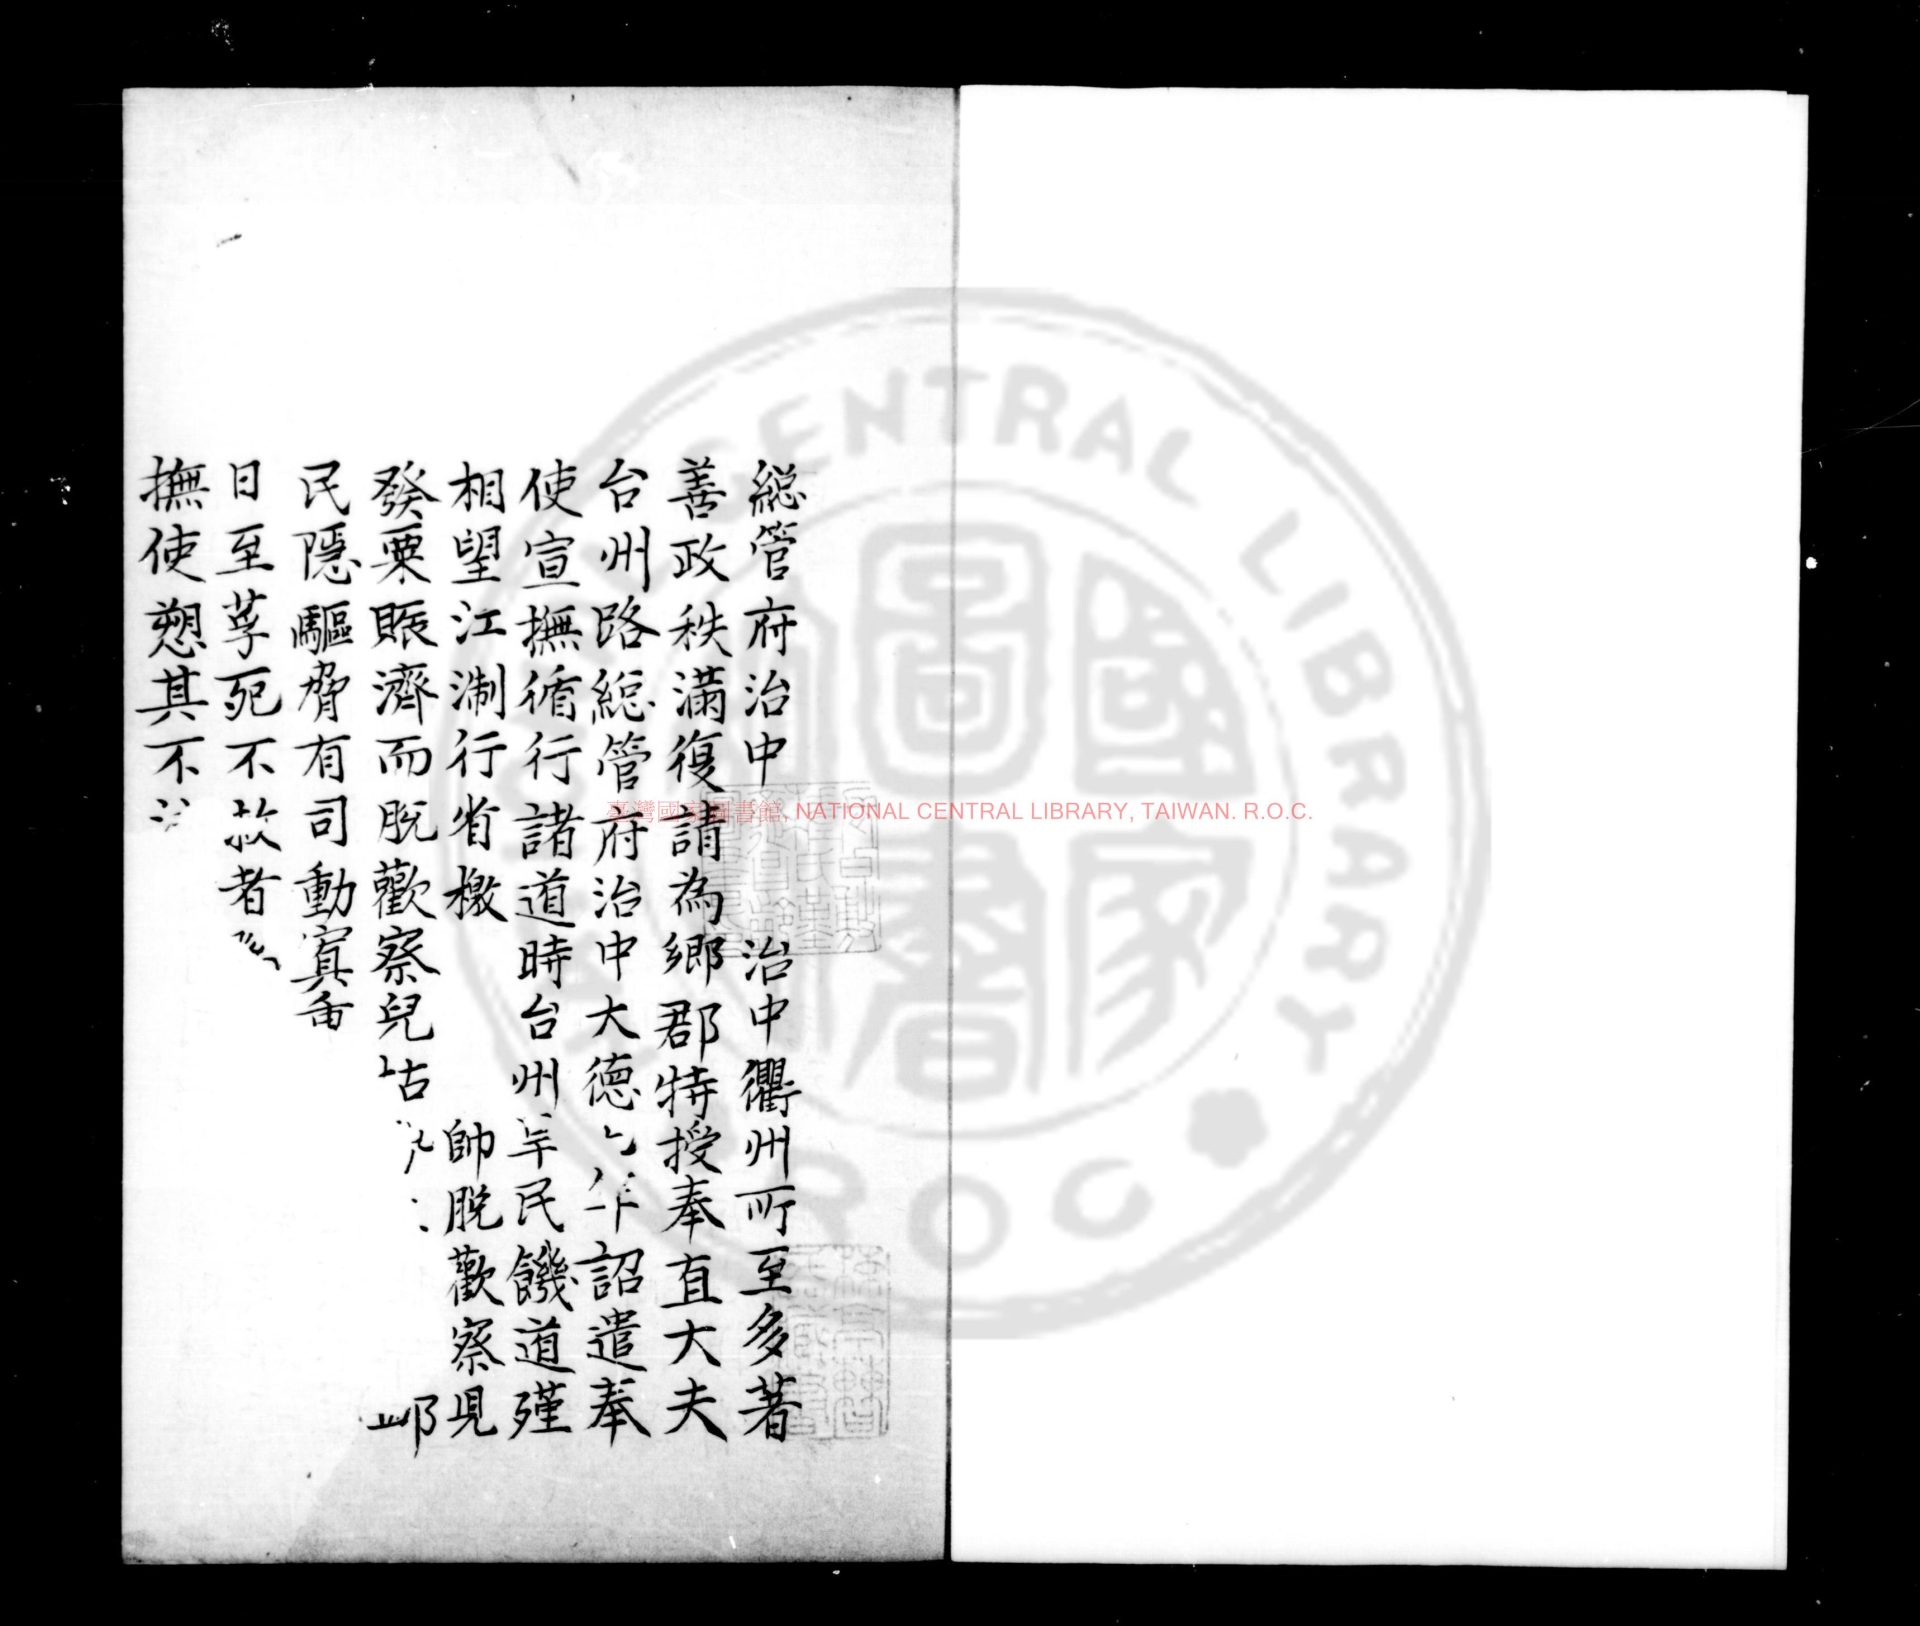 総管府治中 治中衢州所至多著
善政秩滿復請為鄉郡特授奉直大夫
台州路総管府治中大德 年詔遣奉
使宣撫循行諸道時台州年民饑道殣
相望江浙行省檄 帥脫歡察兒
發粟賑濟而脫歡察兒怙
民隱驅脅有司動寘
日至莩死不救者
撫使愬其不法
臺灣國家圖書館, NATIONAL CENTRAL LIBRARY, TAIWAN. R.O.C.
NATIONAL CENTRAL LIBRARY
ROC
國家圖書